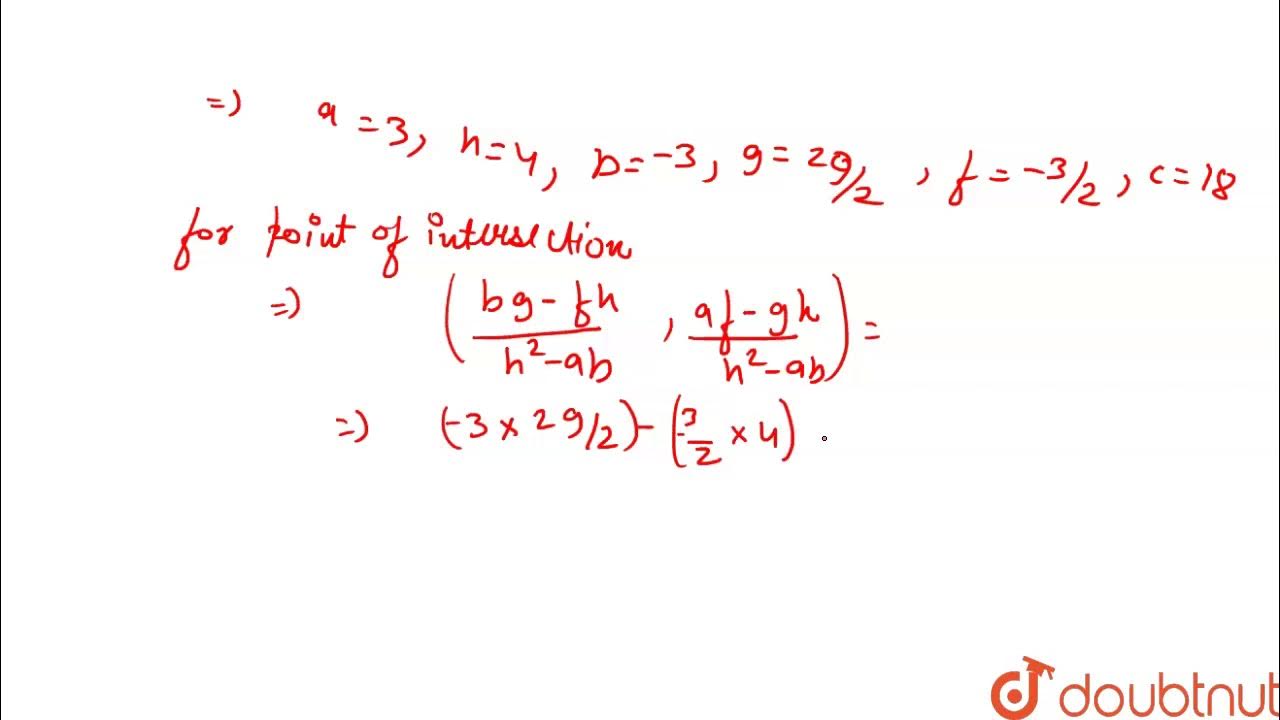 =) a = 3, h = 4, b = -3, g = 29/2, f = -3/2, c = 18
for point of intersection
=) (bg - fh / h² - ab , af - gh / h² - ab) =
=) (-3 × 29/2) - (-3/2 × 4)
doubtnut